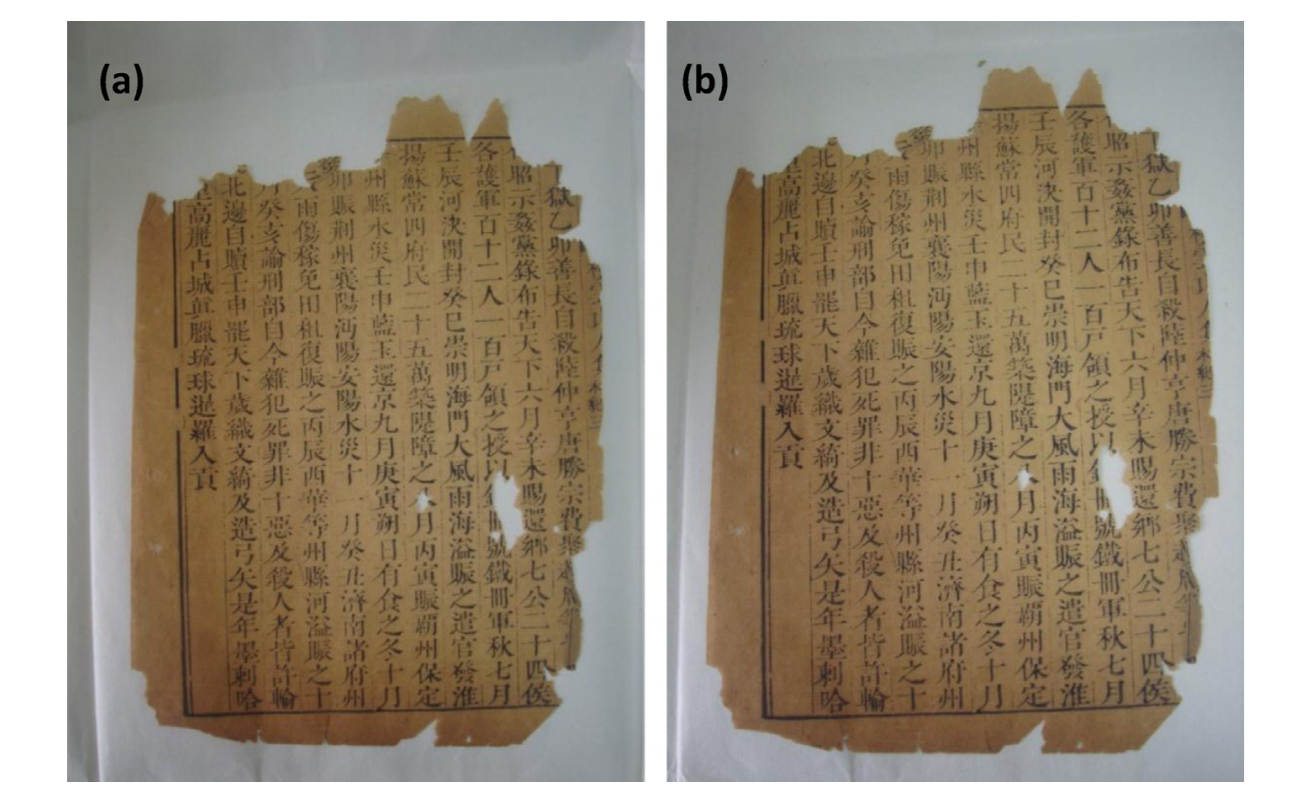 (a)
獄乙卯善長自殺陸仲亨唐勝宗費聚
昭示姦黨錄布告天下六月辛未賜還鄉七公二十四侯
各護軍百十二人一百戶領之授以號鐵冊軍秋七月
壬辰河決開封癸巳崇明海門大風雨海溢賑之遣官發淮
揚蘇常四府民二十五萬築隄障之月丙寅賑霸州保定
州縣水災壬申藍玉還京九月庚寅朔日有食之冬十月
卯賑荆州襄陽沔陽安陽水災十一月癸丑濟南諸府州
雨傷稼免田租復賑之丙辰西華等州縣河溢賑之十
癸亥諭刑部自今雜犯死罪非十惡及殺人者皆許輸
北邊自贖壬申罷天下歲織文綺及造弓矢是年墨剌哈
里高麗占城眞臘琉球暹羅入貢
(b)
本紀三
獄乙卯善長自殺陸仲亨唐勝宗費聚
昭示姦黨錄布告天下六月辛未賜還鄉七公二十四侯
各護軍百十二人一百戶領之授以號鐵冊軍秋七月
壬辰河決開封癸巳崇明海門大風雨海溢賑之遣官發淮
揚蘇常四府民二十五萬築隄障之月丙寅賑霸州保定
州縣水災壬申藍玉還京九月庚寅朔日有食之冬十月
卯賑荆州襄陽沔陽安陽水災十一月癸丑濟南諸府州
雨傷稼免田租復賑之丙辰西華等州縣河溢賑之十
癸亥諭刑部自今雜犯死罪非十惡及殺人者皆許輸
北邊自贖壬申罷天下歲織文綺及造弓矢是年墨剌哈
里高麗占城眞臘琉球暹羅入貢